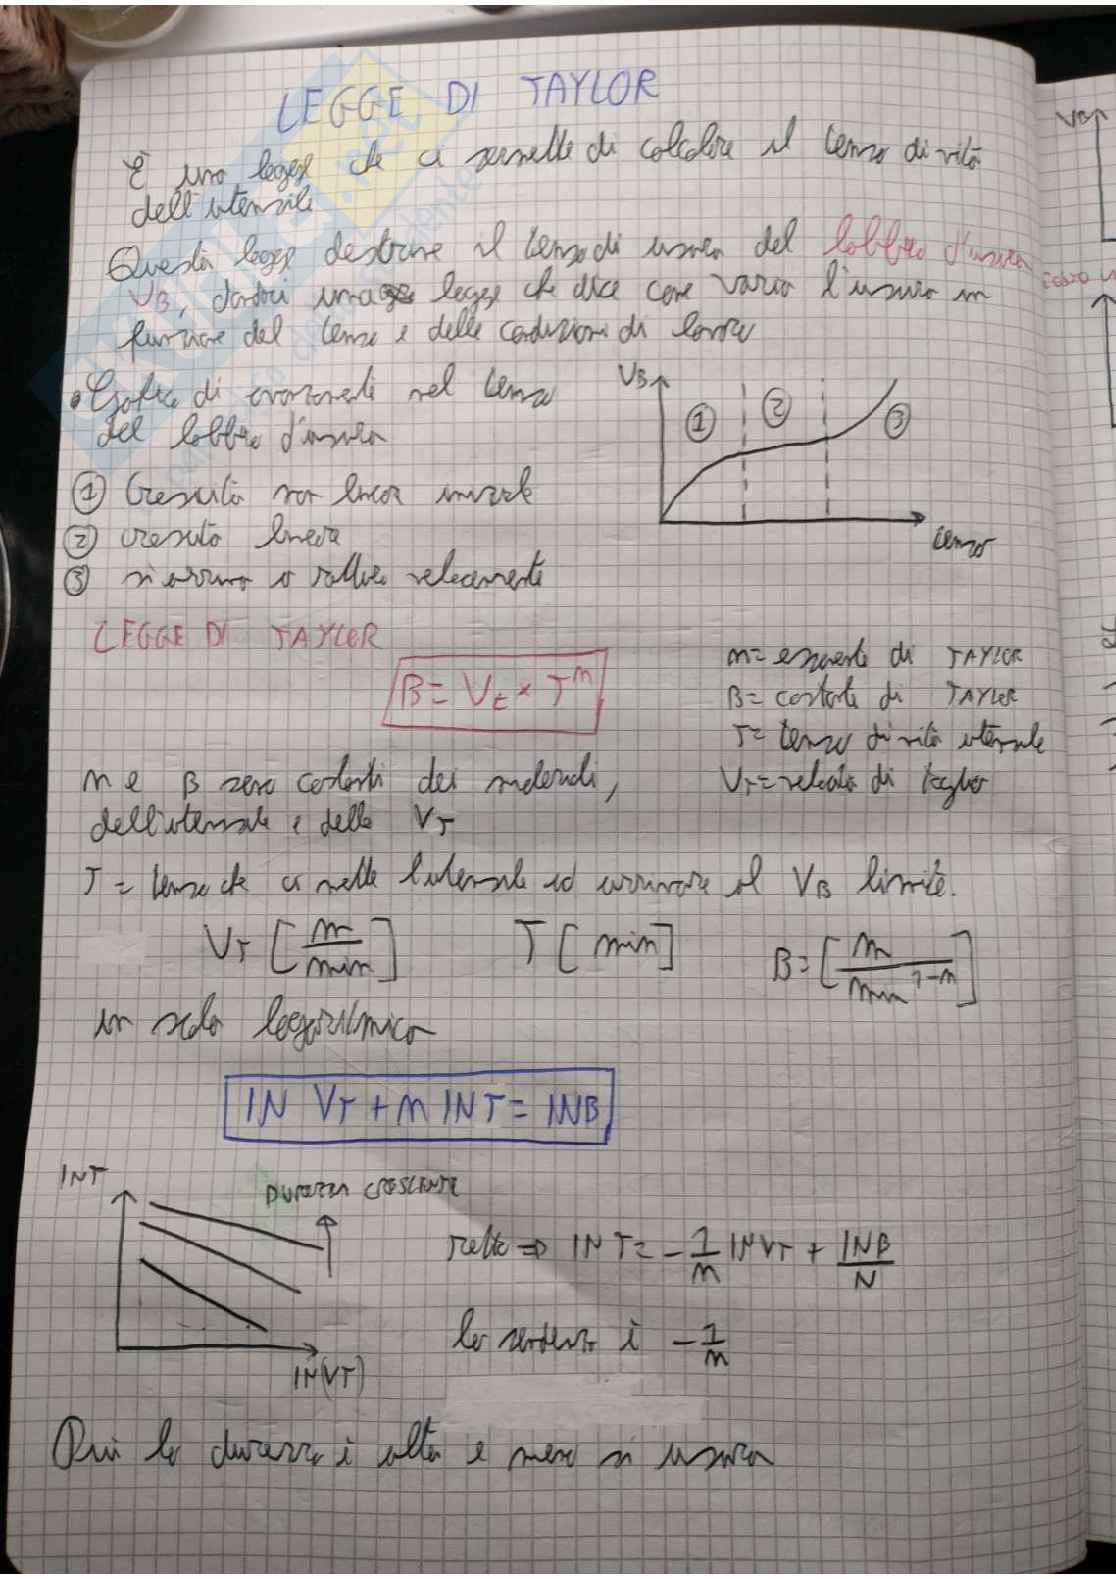 LEGGE DI TAYLOR
È una legge che ci permette di calcolare il tempo di vita
dell'utensile
Questa legge descrive il tempo di usura del labbro d'usura
VB, dandoci una legge che dice come varia l'usura in
funzione del tempo e delle condizioni di lavoro
• Grafico di avanzamento nel tempo
del labbro d'usura
VB
① ② ③
tempo
① Crescita non lineare iniziale
② crescita lineare
③ si arriva a rottura velocemente
LEGGE DI TAYLOR
B = Vt × T^n
n = esponente di TAYLOR
B = costante di TAYLOR
T = tempo di vita utensile
VT = velocità di taglio
n e B sono costanti dei materiali,
dell'utensile e della VT
T = tempo che ci mette l'utensile ad arrivare al VB limite.
VT [m/min] T [min] B = [m/min^1-n]
in scala logaritmica
lN VT + n lN T = lNB
lNT
DUREZZA CRESCENTE
lN(VT)
retta => lN T = -1/n lN VT + lNB/N
la pendenza è -1/n
Più la durezza è alta e meno si usura
VB